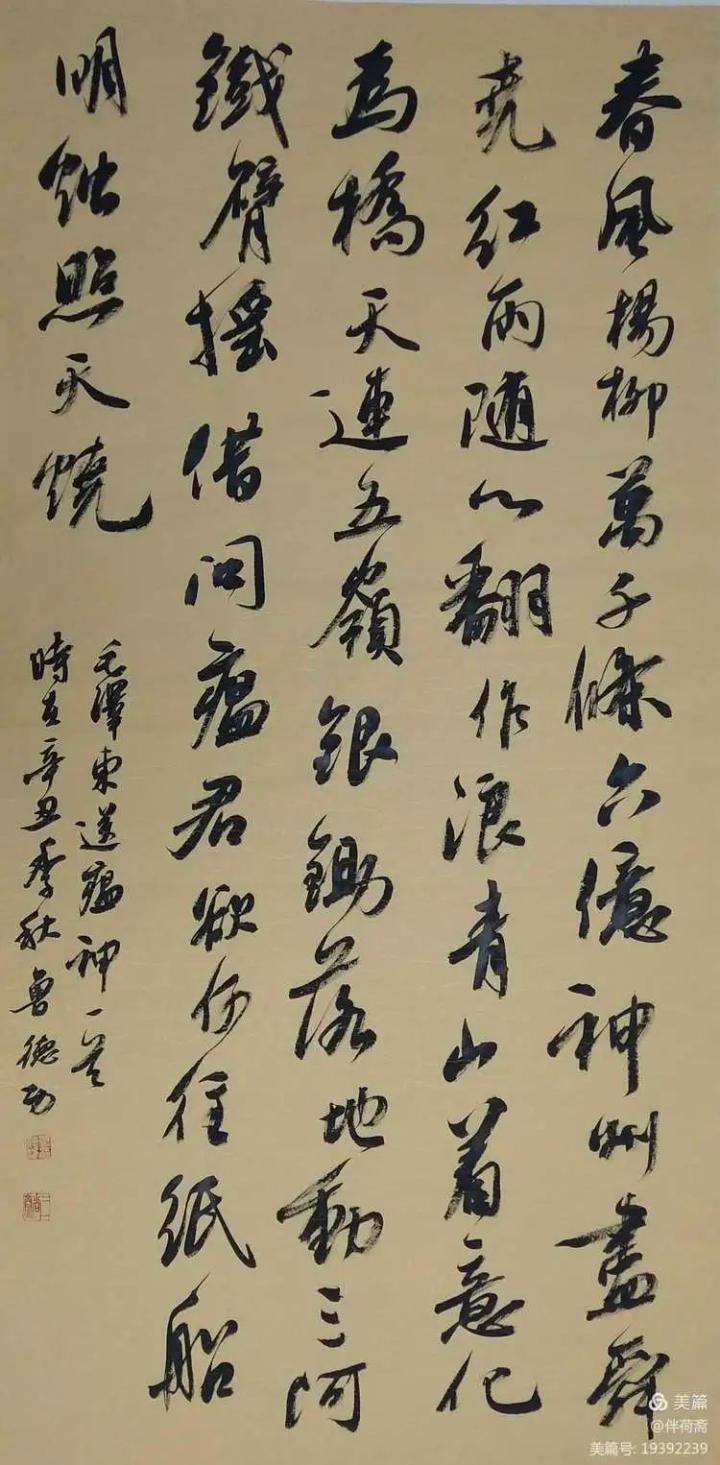 春風楊柳萬千條六億神州盡舜
堯紅雨隨心翻作浪青山着意化
為橋天連五嶺銀鋤落地動三河
鐵臂搖借問瘟君欲何往紙船
明燭照天燒
毛澤東送瘟神一首
時在辛丑季秋魯德功
美篇
@伴荷斋
美篇号: 19392239